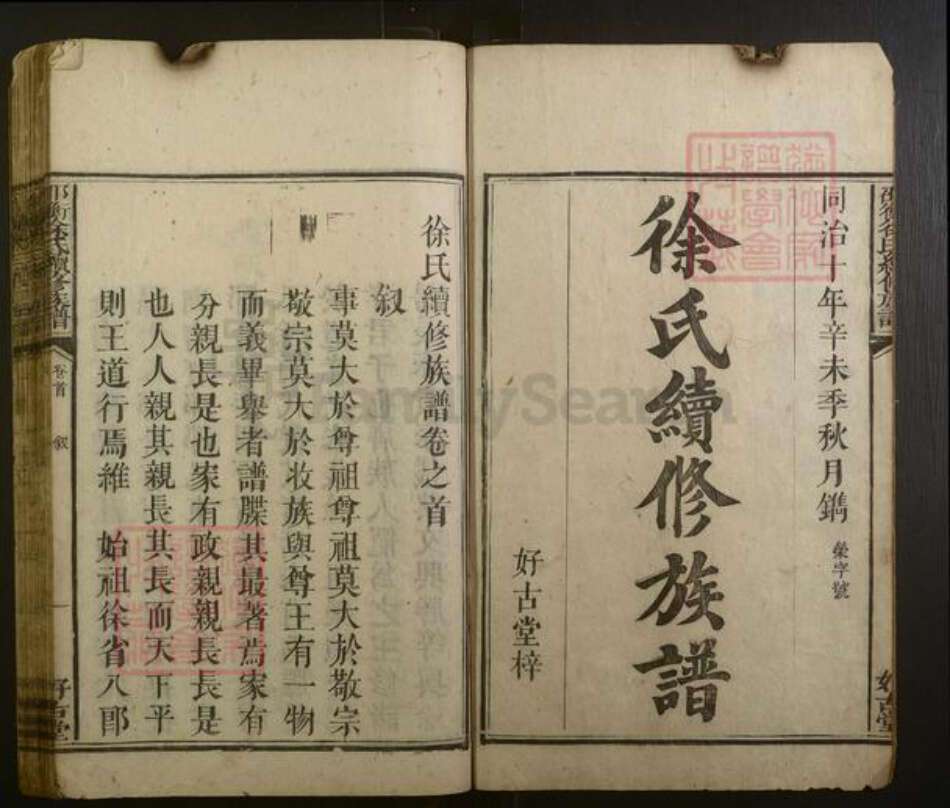 同治十年辛未季秋月鐫 榮字號
徐氏續修族譜
好古堂梓
徐氏續修族譜卷之首
叙
事莫大於尊祖尊祖莫大於敬宗
敬宗莫大於收族與尊王有一物
而義畢舉者譜牒其最著焉家有
分親長是也家有政親親長長是
也人人親其親長其長而天下平
則王道行焉維 始祖徐省八郎
氏續修族譜
卷首 叙
一
好古堂
FamilySearch